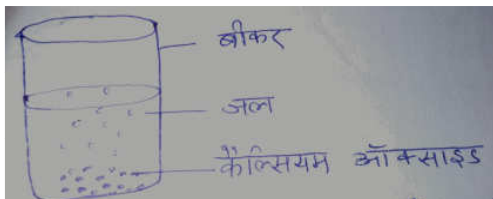 बीकर
जल
कैल्सियम ऑक्साइड